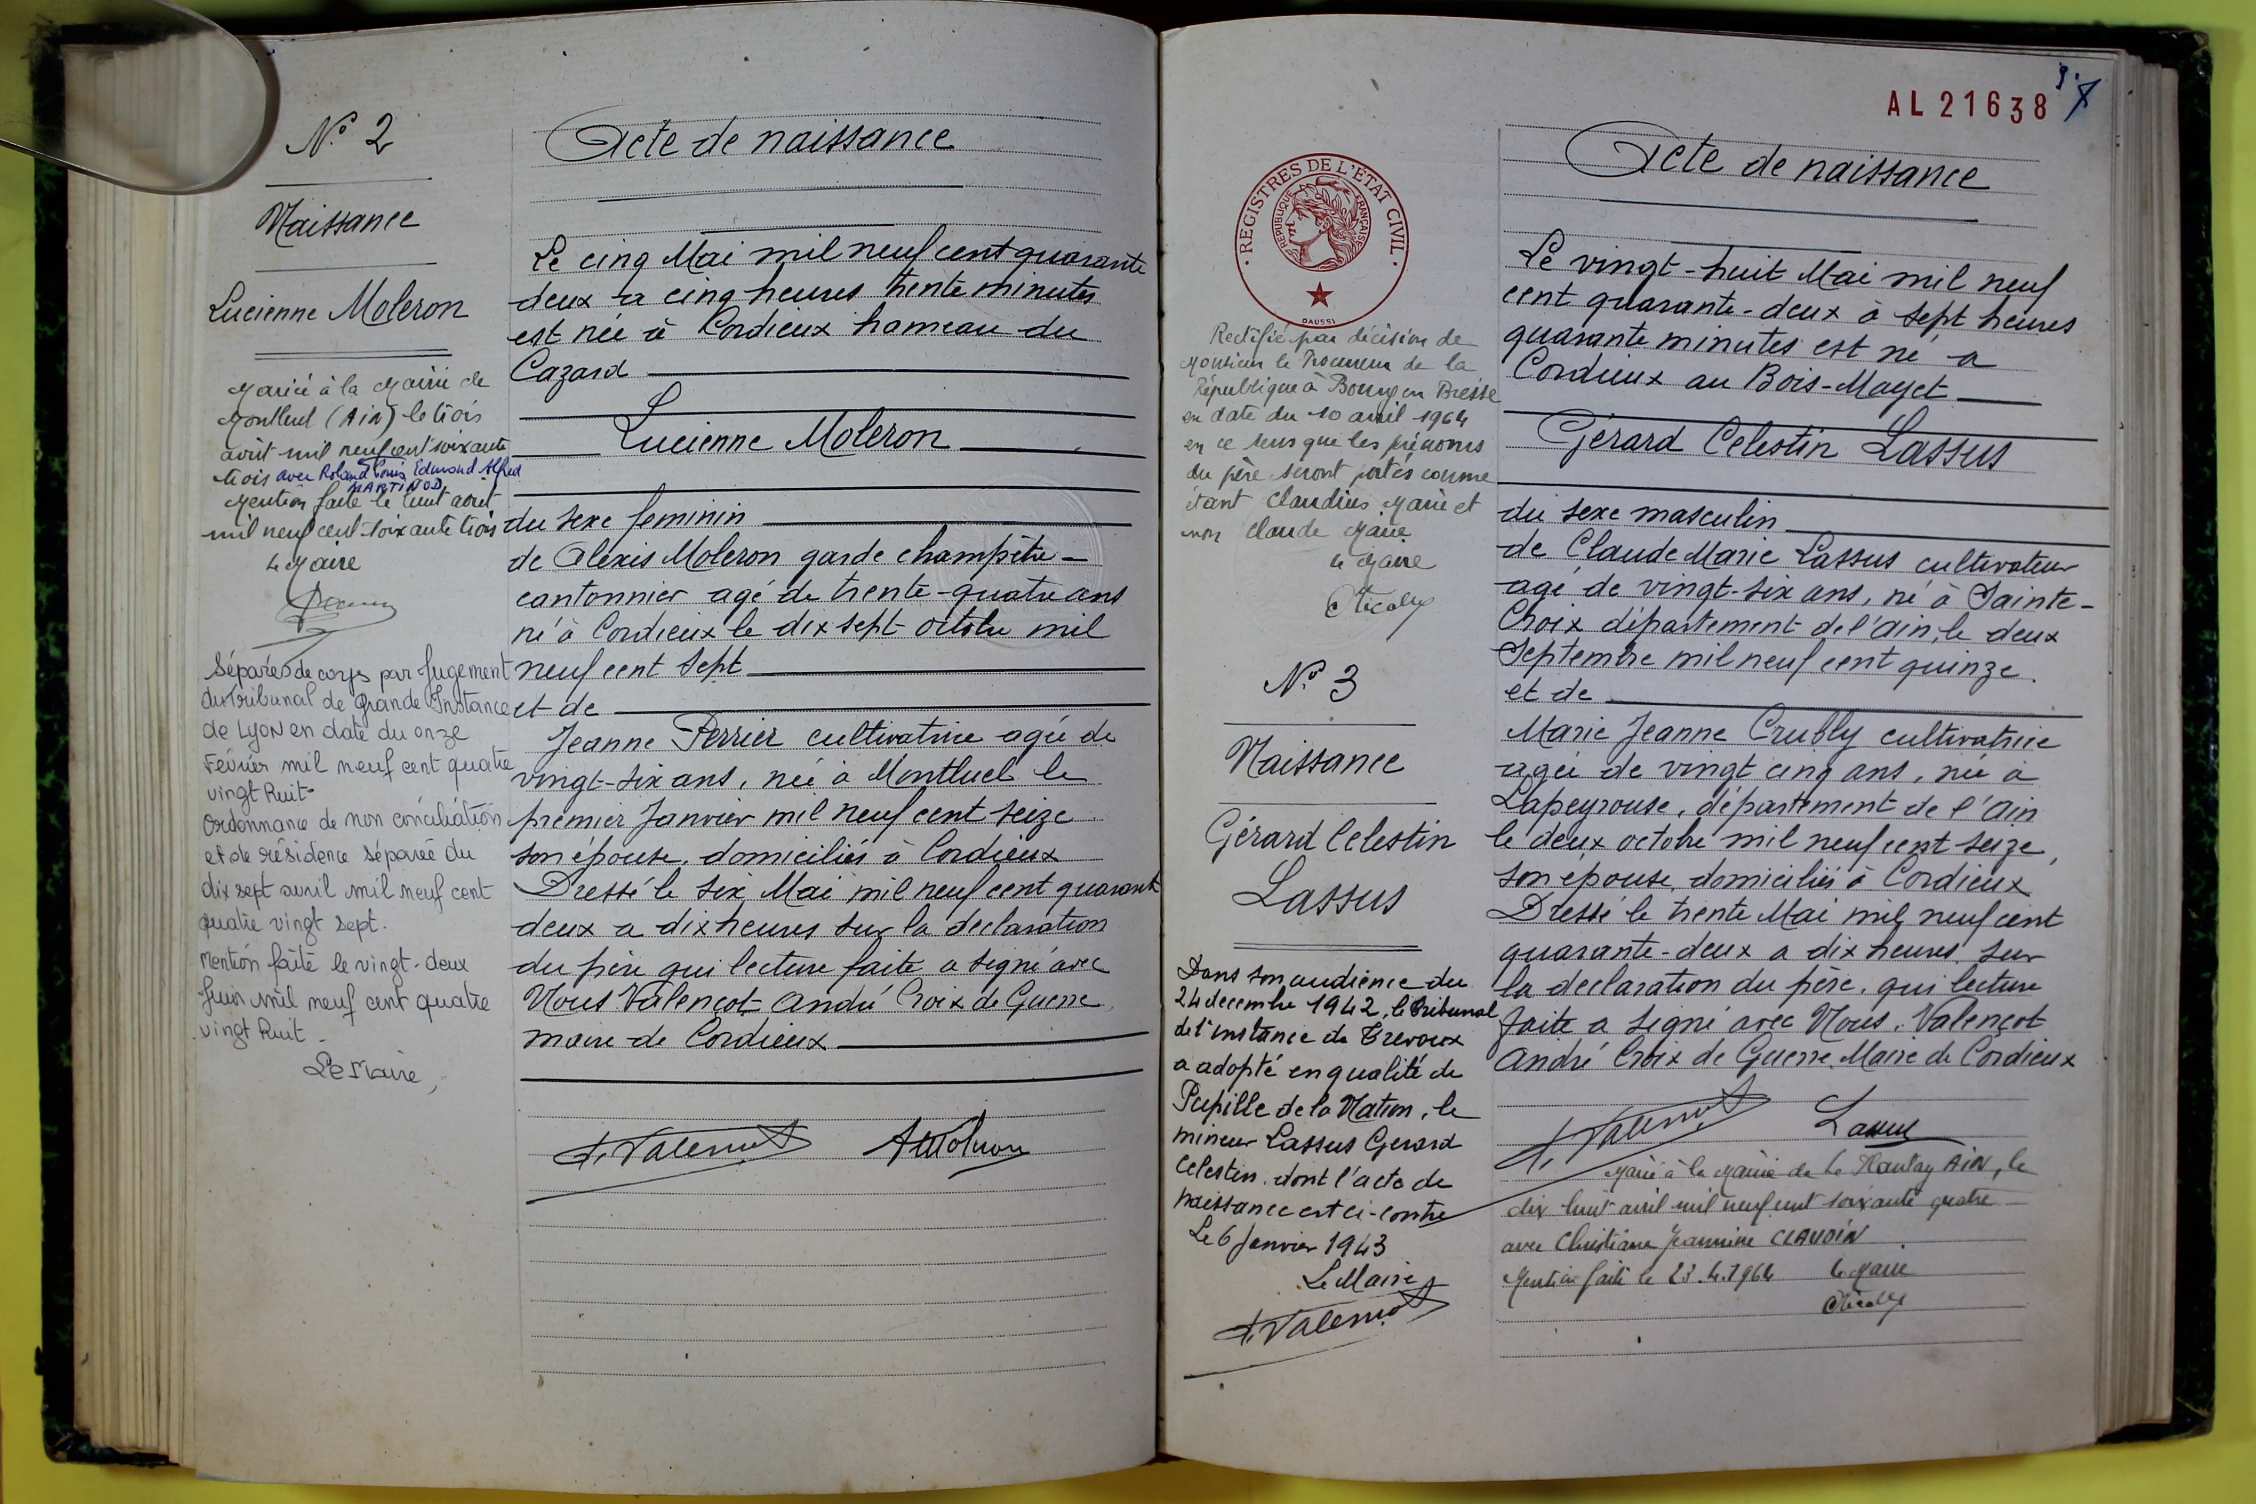 N° 2
Naissance
Lucienne Moleron
Mariée à la Mairie de
Montluel (Ain) le trois
août mil neuf cent soixante
trois avec Roland Louis Edmond Alfred
MARTINOD
Mention faite le huit août
mil neuf cent soixante trois
Le Maire
Séparés de corps par Jugement
du Tribunal de Grande Instance
de Lyon en date du onze
Février mil neuf cent quatre
vingt huit.
Ordonnance de non conciliation
et de résidence séparée du
dix sept avril mil neuf cent
quatre vingt sept.
Mention faite le vingt-deux
Juin mil neuf cent quatre
vingt huit.
Le Maire,
Acte de naissance
Le cinq Mai mil neuf cent quarante
deux a cinq heures trente minutes
est née à Cordieux hameau du
Cazard
Lucienne Moleron
du sexe feminin
de Alexis Moleron garde champêtre-
cantonnier agé de trente-quatre ans
né à Cordieux le dix sept octobre mil
neuf cent sept
et de
Jeanne Perrier cultivatrice agée de
vingt-six ans, née à Montluel le
premier Janvier mil neuf cent seize
son épouse, domiciliés à Cordieux
Dressé le six Mai mil neuf cent quarante
deux a dix heures sur la declaration
du père qui lecture faite a signé avec
Nous Valençot André Croix de Guerre
maire de Cordieux
A. Valençot
AMoleron
AL 21638
REGISTRES DE L'ÉTAT CIVIL
RÉPUBLIQUE FRANÇAISE
DAUSSI
Rectifié par décision de
Monsieur le Procureur de la
République à Bourg en Bresse
en date du 10 avril 1964
en ce sens que les prénoms
du père seront portés comme
étant Claudius Marie et
non Claude Marie
Le Maire
N° 3
Naissance
Gérard Celestin
Lassus
Dans son audience du
24 decembre 1942, le Tribunal
de l'instance de Trevoux
a adopté en qualité de
Pupille de la Nation, le
mineur Lassus Gerard
Celestin, dont l'acte de
naissance est ci-contre
Le 6 Janvier 1943
Le Maire
A. Valençot
Acte de naissance
Le vingt-huit Mai mil neuf
cent quarante-deux à sept heures
quarante minutes est né a
Cordieux au Bois-Mayet
Gérard Celestin Lassus
du sexe masculin
de Claude Marie Lassus cultivateur
agé de vingt-six ans, né à Sainte-
Croix département de l'Ain, le deux
Septembre mil neuf cent quinze.
et de
Marie Jeanne Crubly cultivatrice
agée de vingt cinq ans, née à
Lapeyrouse, département de l'Ain
le deux octobre mil neuf cent seize,
son épouse, domiciliés à Cordieux
Dressé le trente Mai mil neuf cent
quarante-deux a dix heures sur
la declaration du père, qui lecture
faite a signé avec Nous, Valençot
André Croix de Guerre Maire de Cordieux
A. Valençot
Lassus
Marié à la Mairie de Le Plantay Ain, le
dix huit avril mil neuf cent soixante quatre
avec Christiane Jeannine CLAUDIN
Mention faite le 23.4.1964
Le Maire